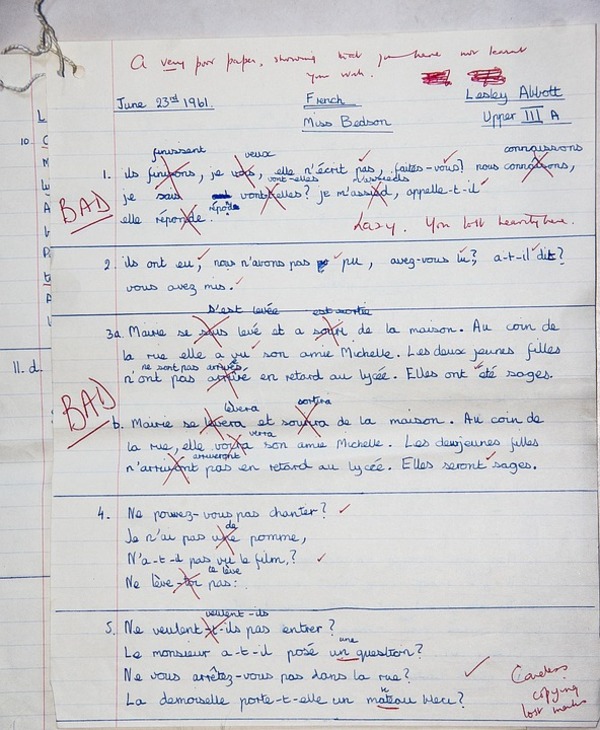 A very poor paper, showing that you have not learnt
your work.
June 23rd 1961. French Lesley Abbott
Miss Bedson Upper III A
finissent veux connaissons
1. ils finissons, je vois, elle n'écrit pas, faites-vous? nous connaisons,
vont-elles m'assieds
je sais vont-elles? je m'assied, appelle-t-il
BAD
répond
elle réponde.
Lazy. You lost heavily here.
2. ils ont eu, nous n'avons pas pu, avez-vous lu? a-t-il dit?
vous avez mis.
s'est levée est sortie
3a. Marie se levé et a de la maison. Au coin de
la rue elle a vu son amie Michelle. Les deux jeunes filles
ne sont pas arrivées
n'ont pas arrivé en retard au lycée. Elles ont été sages.
BAD
lèvera sortira
b. Marie se levera et de la maison. Au coin de
verra
la rue, elle voira son amie Michelle. Les deux jeunes filles
arriveront
n'arriront pas en retard au lycée. Elles seront sages.
4. Ne pouvez-vous pas chanter?
de
Je n'ai pas une pomme,
N'a-t-il pas vu le film?
te lève
Ne lève-toi pas.
veulent-ils
5. Ne veulent-t-ils pas entrer?
une
Le monsieur a-t-il posé un question?
Ne vous arrêtez-vous pas dans la rue?
La demoiselle porte-t-elle un mateau bleu?
Careless
copying
lost marks
10
11. d.